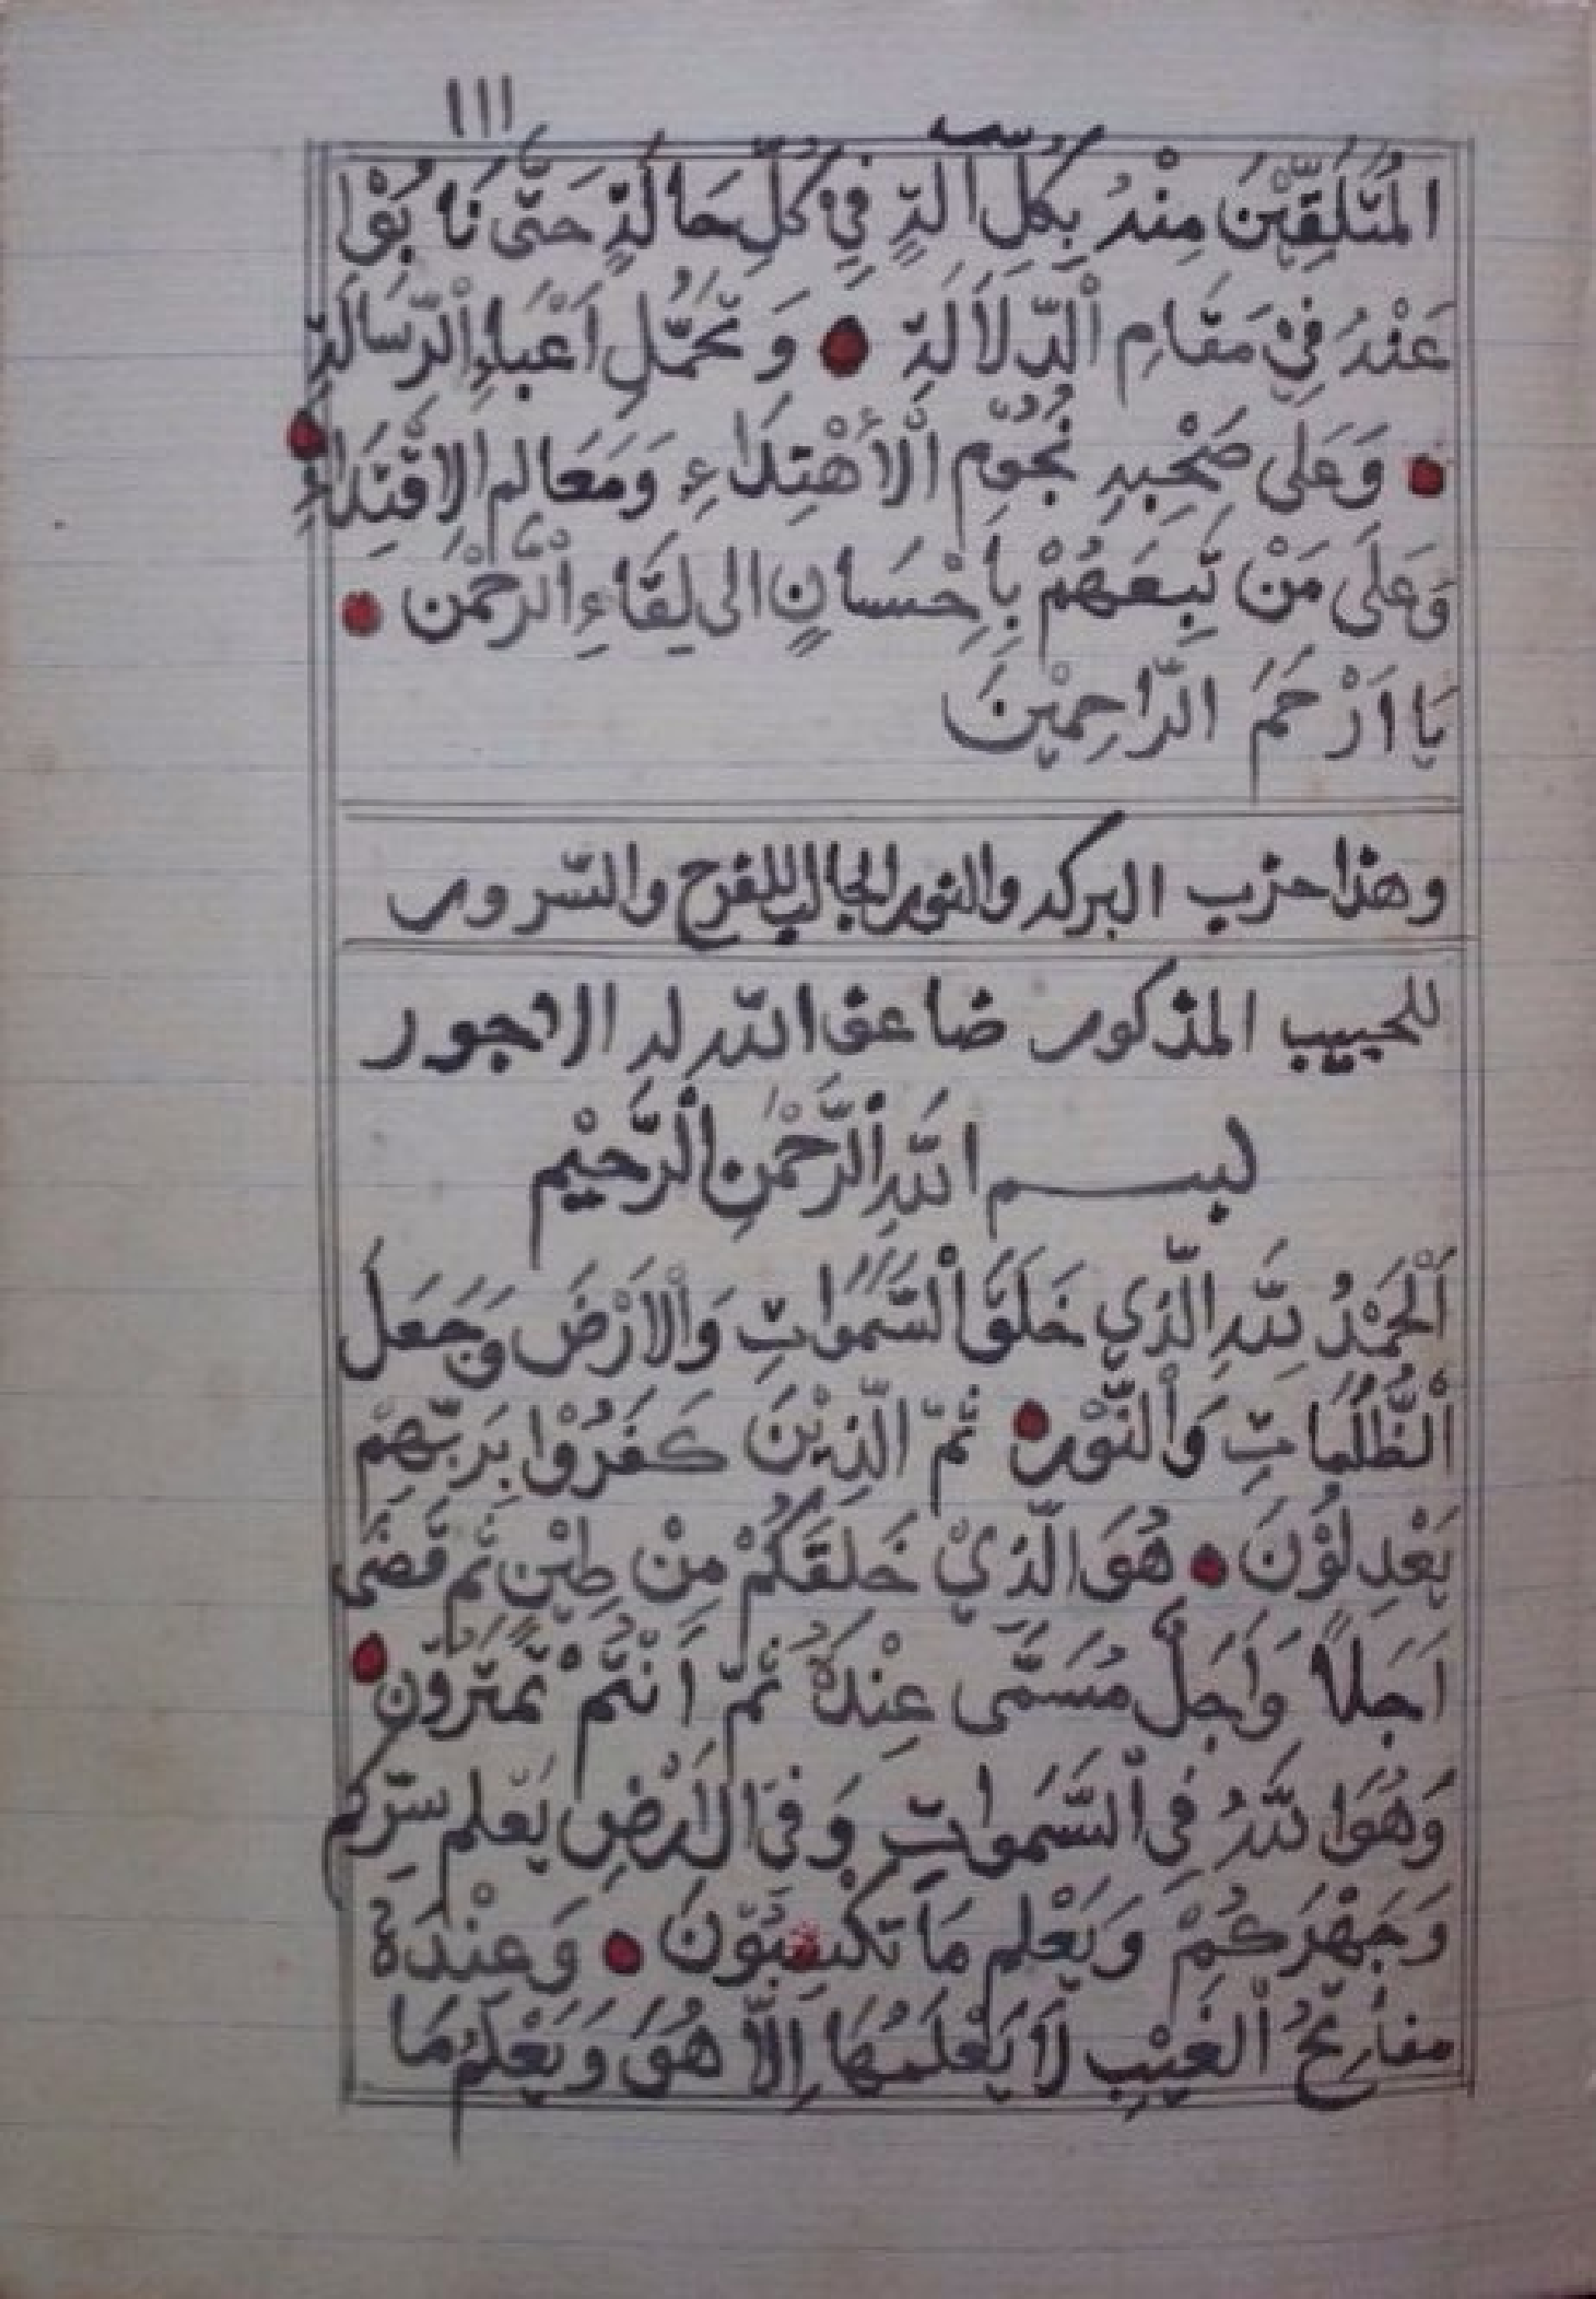 ١١١
المُتَلَقِّيْنَ مِنْهُ بِكُلِّ آلَةٍ فِيْ كُلِّ حَالَةٍ حَتَّى نَابُوْا
عَنْهُ فِيْ مَقَامِ الْدِّلَالَةِ ● وَتَحَمُّلِ اَعْبَاءِ الْرِّسَالَةِ
● وَعَلَى صَحْبِهِ نُجُوْمِ الْأهْتِدَاءِ وَمَعَالِمِ الِاقْتِدَاءِ ●
وَعَلَى مَنْ تَبِعَهُمْ بِاِحْسَانٍ الى لِقَاءِ الْرَّحْمٰن ●
يَا اَرْحَمَ الرَّاحِمِيْنَ
وهذا حزب البركه والنور الجالب للفرح والسّرور
للحبيب المذكور ضاعف اللّه له الاجور
بسم اللَّهِ الْرَّحْمٰنِ الْرَّحِيْم
اَلْحَمْدُ لِلّٰهِ الَّذِي خَلَقَ الْسَّمٰوَاتِ وَالْاَرْضَ وَجَعَلَ
الْظُّلُمَاتِ وَالْنُّوْرَ ● ثُمَّ الَّذِيْنَ كَفَرُوْا بِرَبِّهِمْ
يَعْدِلُوْنَ ● هُوَ الَّذِيْ خَلَقَكُمْ مِنْ طِيْنٍ ثُمَّ قَضَى
اَجَلاً وَاَجَلٌ مُسَمًّى عِنْدَهُ ثُمَّ اَنْتُمْ تَمْتَرُوْنَ ●
وَهُوَ اللّٰهُ فِي الْسَّمَواتِ وَفِي الْاَرْضِ يَعْلَم سِرَّكُم
وَجَهْرَكُمْ وَيَعْلم مَا تَكْسِبُوْنَ ● وَعِنْدَهُ
مفَاتِحُ الْغَيْبِ لَا يَعْلَمُهَا اِلَّا هُوَ وَيَعْلَمُ مَا